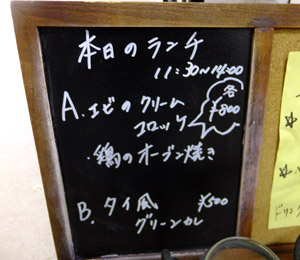 本日のランチ
11:30~14:00
A.エビのクリーム
コロッケ
各
¥800
・鶏のオーブン焼き
B.タイ風 ¥500
グリーンカレ
ドリン